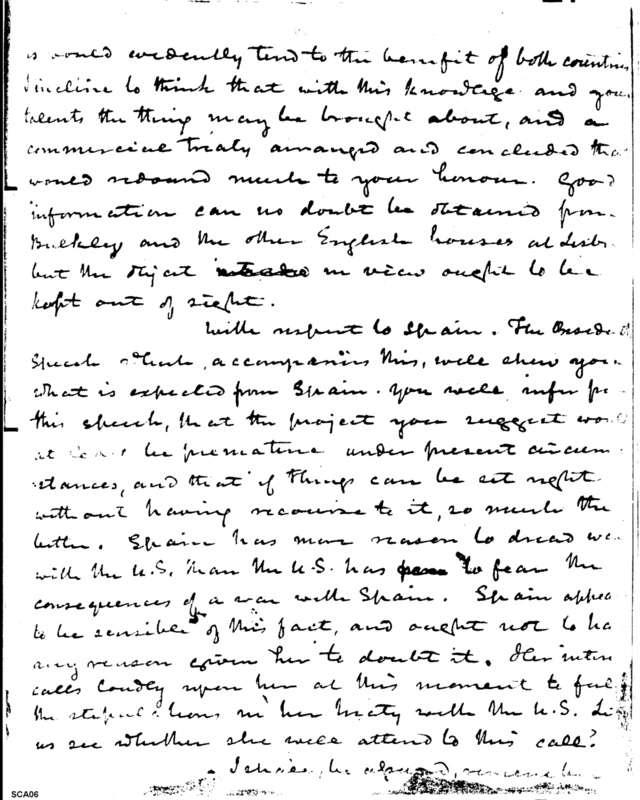 would evidently tend to the benefit of both countries
incline to think that with this knowledge and your
talents the thing may be brought about, and a
commercial treaty arranged and concluded that
would redound much to your honour. Good
information can no doubt be obtained from
Bulkley and the other English houses at Lisb
but the object in view ought to be
kept out of sight.
With respect to Spain. The
Speech which accompanies this, will shew you
what is expected from Spain. You will infer
this speech, that the project you suggest would
at be premature under present circum
stances, and that if things can be set right
without having recourse to it, so much the
better. Spain has more reason to dread
with the U.S. than the U.S. has to fear the
consequences of a war with Spain. Spain appea
to be sensible of this fact, and ought not to ha
any reason given her to doubt it. Her inter
calls loudly upon her at this moment to ful
the stipulations in her treaty with the U.S.
us see whether she will attend to this call?
SCA06